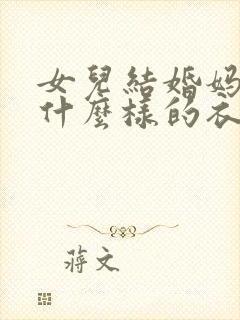 女兒結婚媽
什麼樣的衣
蔣文